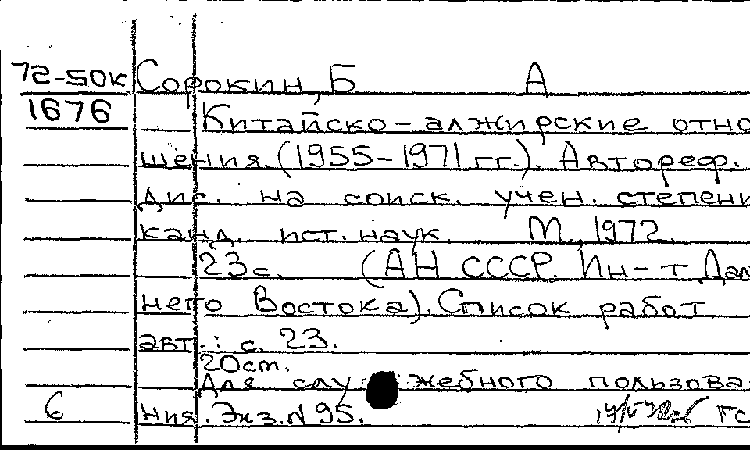 72-50к Сорокин, Б А
1676 Китайско-алжирские отно
шения (1955-1971 гг.). Автореф.
дис. на соиск. учен. степени
канд. ист. наук. М., 1972.
23с. (АН СССР. Ин-т Дал
него Востока). Список работ
авт.: с. 23.
20ст.
Для слу жебного пользова
6 ния. Экз. N 95. ГС